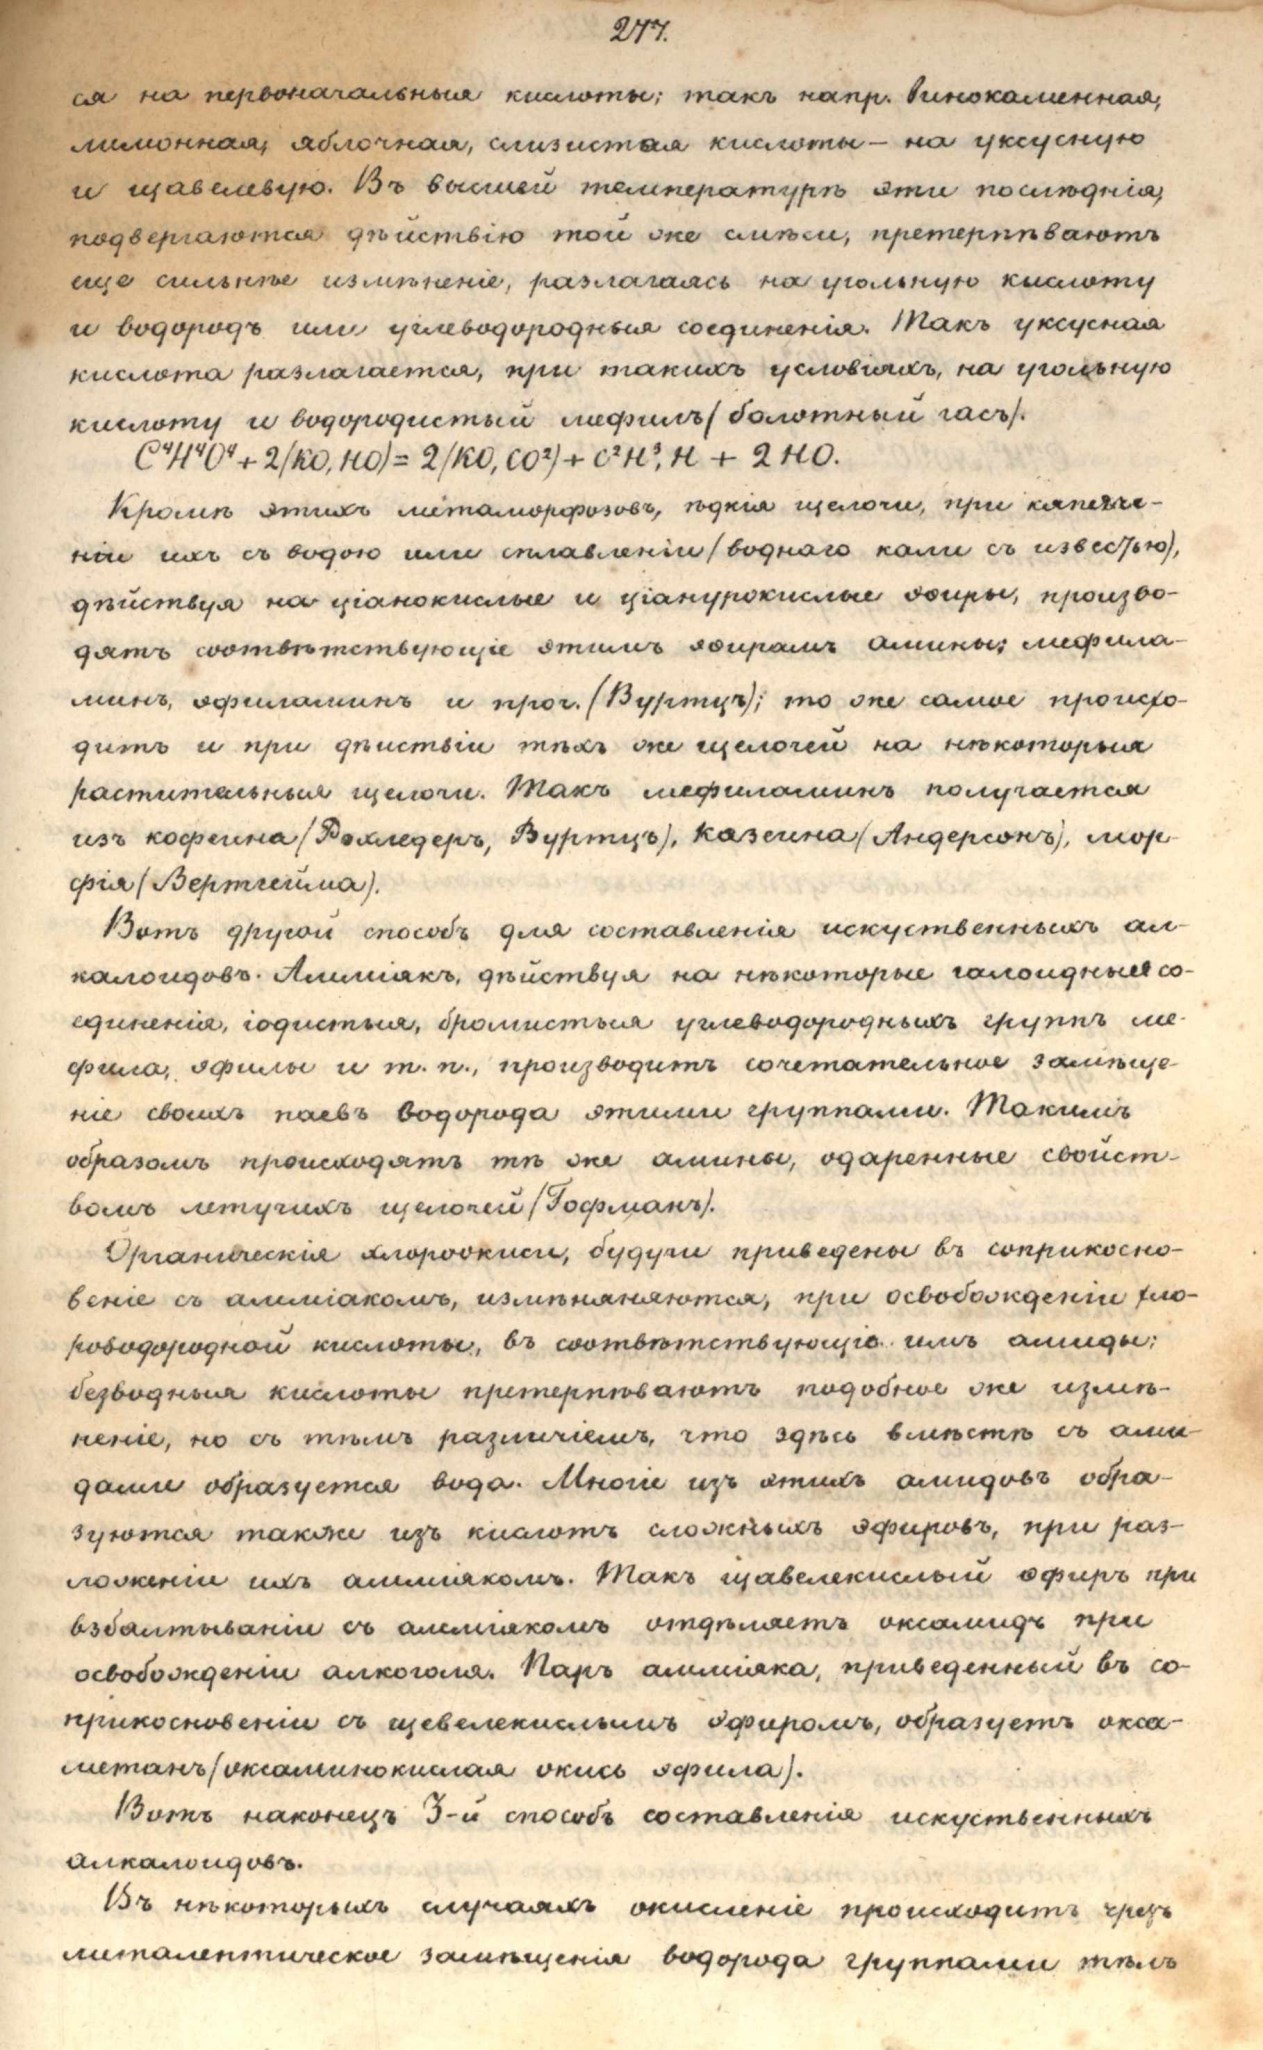 277.
ся на первоначальныя кислоты; такъ напр. Винокаменная,
лимонная, яблочная, слизистая кислоты — на уксусную
и щавелевую. Въ высшей температурѣ эти послѣднія,
подвергаются дѣйствію той же смѣси, претерпѣваютъ
еще сильнѣе измѣненіе, разлагаясь на угольную кислоту
и водородъ или углеводородныя соединенія. Такъ уксусная
кислота разлагается, при такихъ условіяхъ, на угольную
кислоту и водородистый мефилъ (болотный гасъ).
C⁴H⁴O⁴ + 2(KO, HO) = 2(KO, CO²) + C²H³, H + 2HO.
Кромѣ этихъ метаморфозовъ, ѣдкія щелочи, при кипяче-
ніи ихъ съ водою или сплавленіи (воднаго кали съ известью),
дѣйствуя на ціанокислые и ціанурокислые эѳиры, произво-
дятъ соотвѣтствующіе этимъ эѳирамъ амины: мефила-
минъ, эфиламинъ и проч. (Вуртцъ); то же самое происхо-
дитъ и при дѣиствіи тѣхъ же щелочей на нѣкоторыя
растительныя щелочи. Такъ мефиламинъ получается
изъ кофеина (Рохледеръ, Вуртцъ), казеина (Андерсонъ), мор-
фія (Вертгейма).
Вотъ другой способъ для составленія искуственныхъ ал-
калоидовъ. Амміякъ, дѣйствуя на нѣкоторые галоидныя со-
единенія, іодистыя, бромистыя углеводородныхъ группъ ме-
фила, эфилы и т. п., производитъ сочетательное замѣще-
ніе своихъ паевъ водорода этими группами. Такимъ
образомъ происходятъ тѣ же амины, одаренные свойст-
вомъ летучихъ щелочей (Гофманъ).
Органическія хлороокиси, будучи приведены въ соприкосно-
веніе съ амміакомъ, измѣняняются, при освобожденіи хло-
роводородной кислоты, въ соотвѣтствующіе имъ амиды;
безводныя кислоты претерпѣваютъ подобное же измѣ-
неніе, но съ тѣмъ различіемъ, что здѣсь вмѣстѣ съ ами-
дами образуется вода. Многіе изъ этихъ амидовъ обра-
зуются также изъ кислотъ сложныхъ эфировъ, при раз-
ложеніи ихъ амміякомъ. Такъ щавелекислый эфиръ при
взбалтываніи съ амміякомъ отдѣляетъ оксамидъ при
освобожденіи алкоголя. Паръ амміяка, приведенный въ со-
прикосновеніи съ щевелекислымъ эфиромъ, образуетъ окса-
метанъ (оксаминокислая окись эфила).
Вотъ наконецъ 3-й способъ составленія искуственныхъ
алкалоидовъ.
Въ нѣкоторыхъ случаяхъ окисленіе происходитъ чрезъ
металептическое замѣщенія водорода группами тѣлъ